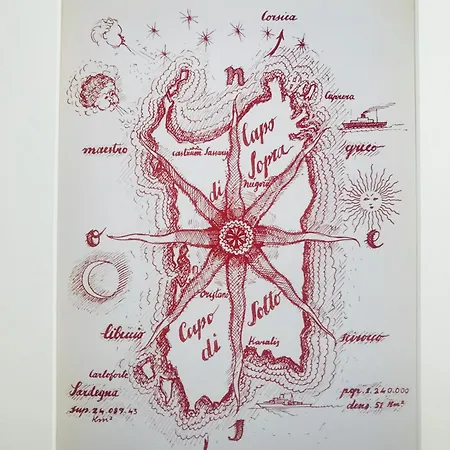 Corsica
n
Caprera
Capo
di
Sopra
maestro
greco
o
e
Capo
di
Sotto
libeccio
scirocco
Karalis
Carloforte
Sardegna
sup. 24.089.43
Km²
pop. 1.240.000
dens. 51 Km²